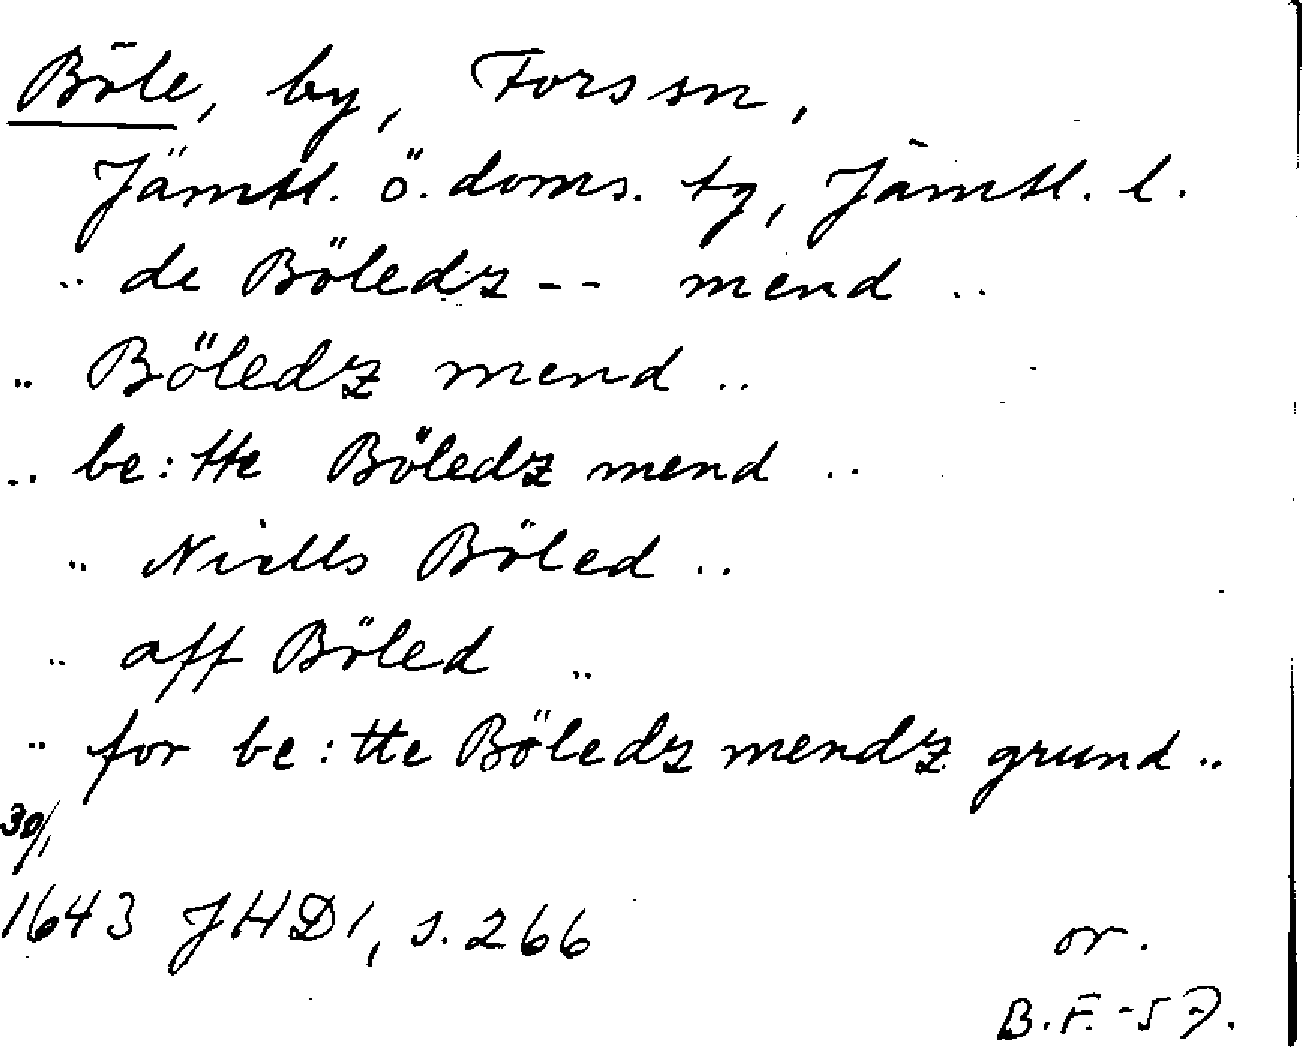 Böle, by, Fors sn,
Jämtl. ö. doms. tg, Jämtl. l.
.. de Böledz -- mend ..
.. Böledz mend ..
.. be:tte Böledz mend ..
.. Niells Böled ..
.. aff Böled ..
.. for be:tte Böledz mendz grund ..
30/1
1643 JHD1, s. 266
or.
B.F. -57.